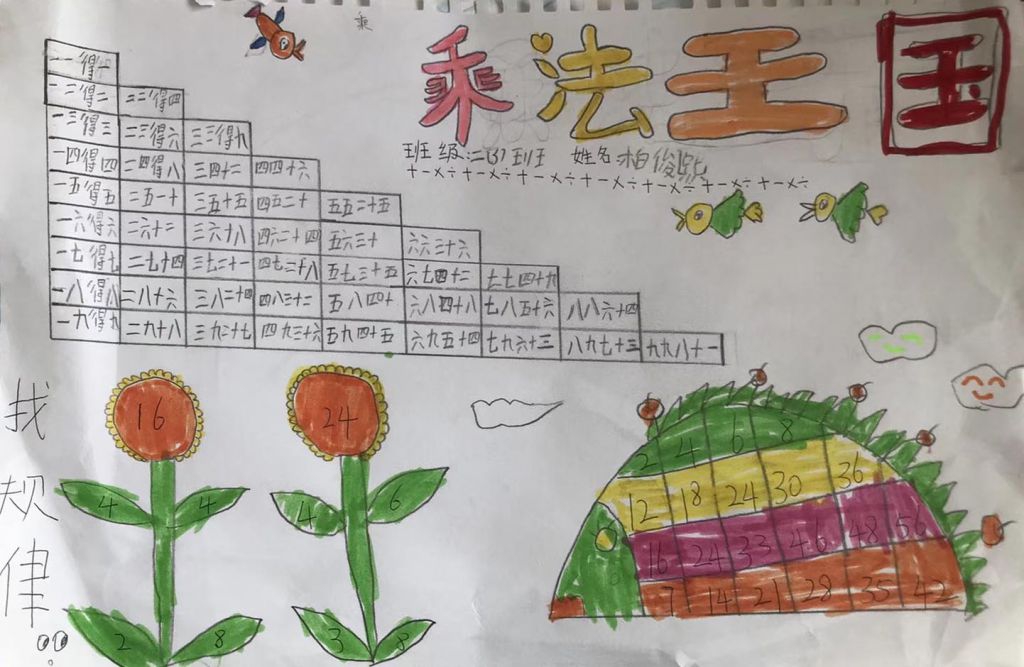 乘
乘法王国
班级:二(3)班 姓名
+-×÷+-×÷+-×÷+-×÷+-×÷+-×÷+-×÷
一一得一
一二得二 二二得四
一三得三 二三得六 三三得九
一四得四 二四得八 三四十二 四四十六
一五得五 二五一十 三五十五 四五二十 五五二十五
一六得六 二六十二 三六十八 四六二十四 五六三十 六六三十六
一七得七 二七十四 三七二十一 四七二十八 五七三十五 六七四十二 七七四十九
一八得八 二八十六 三八二十四 四八三十二 五八四十 六八四十八 七八五十六 八八六十四
一九得九 二九十八 三九二十七 四九三十六 五九四十五 六九五十四 七九六十三 八九七十三 九九八十一
找规律
16
4 4
2 8
24
4 6
3 8
2 4 6 8
12 18 24 30 36
16 24 33 46 48 56
7 14 21 28 35 42